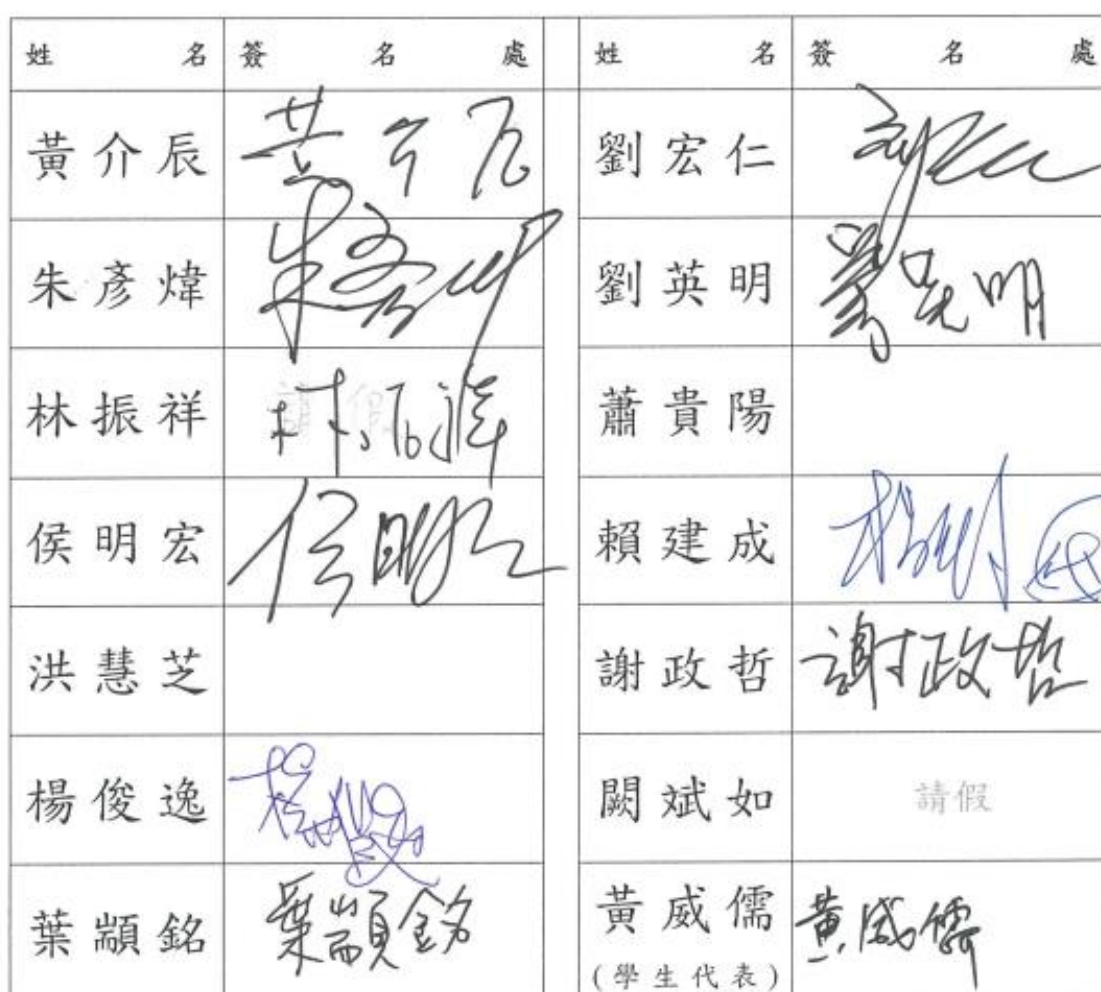 姓名 簽名處 姓名 簽名處
黃介辰 黃介辰 劉宏仁
朱彥煒 朱彥煒 劉英明 劉英明
林振祥 請假 林振祥 蕭貴陽
侯明宏 侯明宏 賴建成
洪慧芝 謝政哲 謝政哲
楊俊逸 闕斌如 請假
葉顓銘 葉顓銘 黃威儒 黃威儒
(學生代表)